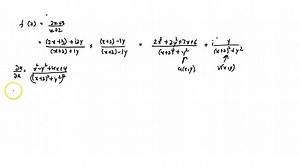 f(z) = (2z+3)/(z+2)
= ((2x+3)+i2y)/((x+2)+iy) × ((x+2)-iy)/((x+2)-iy) = (2x²+2y²+7x+6)/((x+2)²+y²) + i y/((x+2)²+y²)
u(x,y) v(x,y)
∂u/∂x = (x²-y²+4x+4)/((x+2)²+y²)²